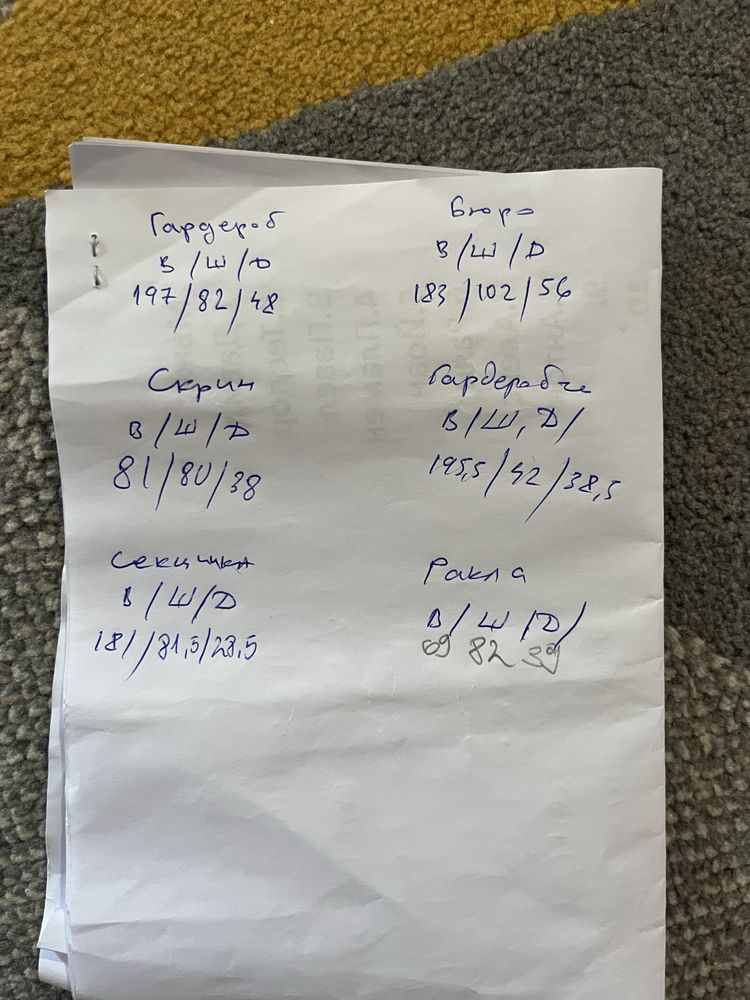 Гардероб
В/Ш/Д
197/82/48
Бюро
В/Ш/Д
183/102/56
Скрин
В/Ш/Д
81/80/38
Гардеробче
В/Ш,Д/
195,5/42/38,5
Секцийка
В/Ш/Д
181//81,5/28,5
Ракла
В/Ш/Д/
69 82 39